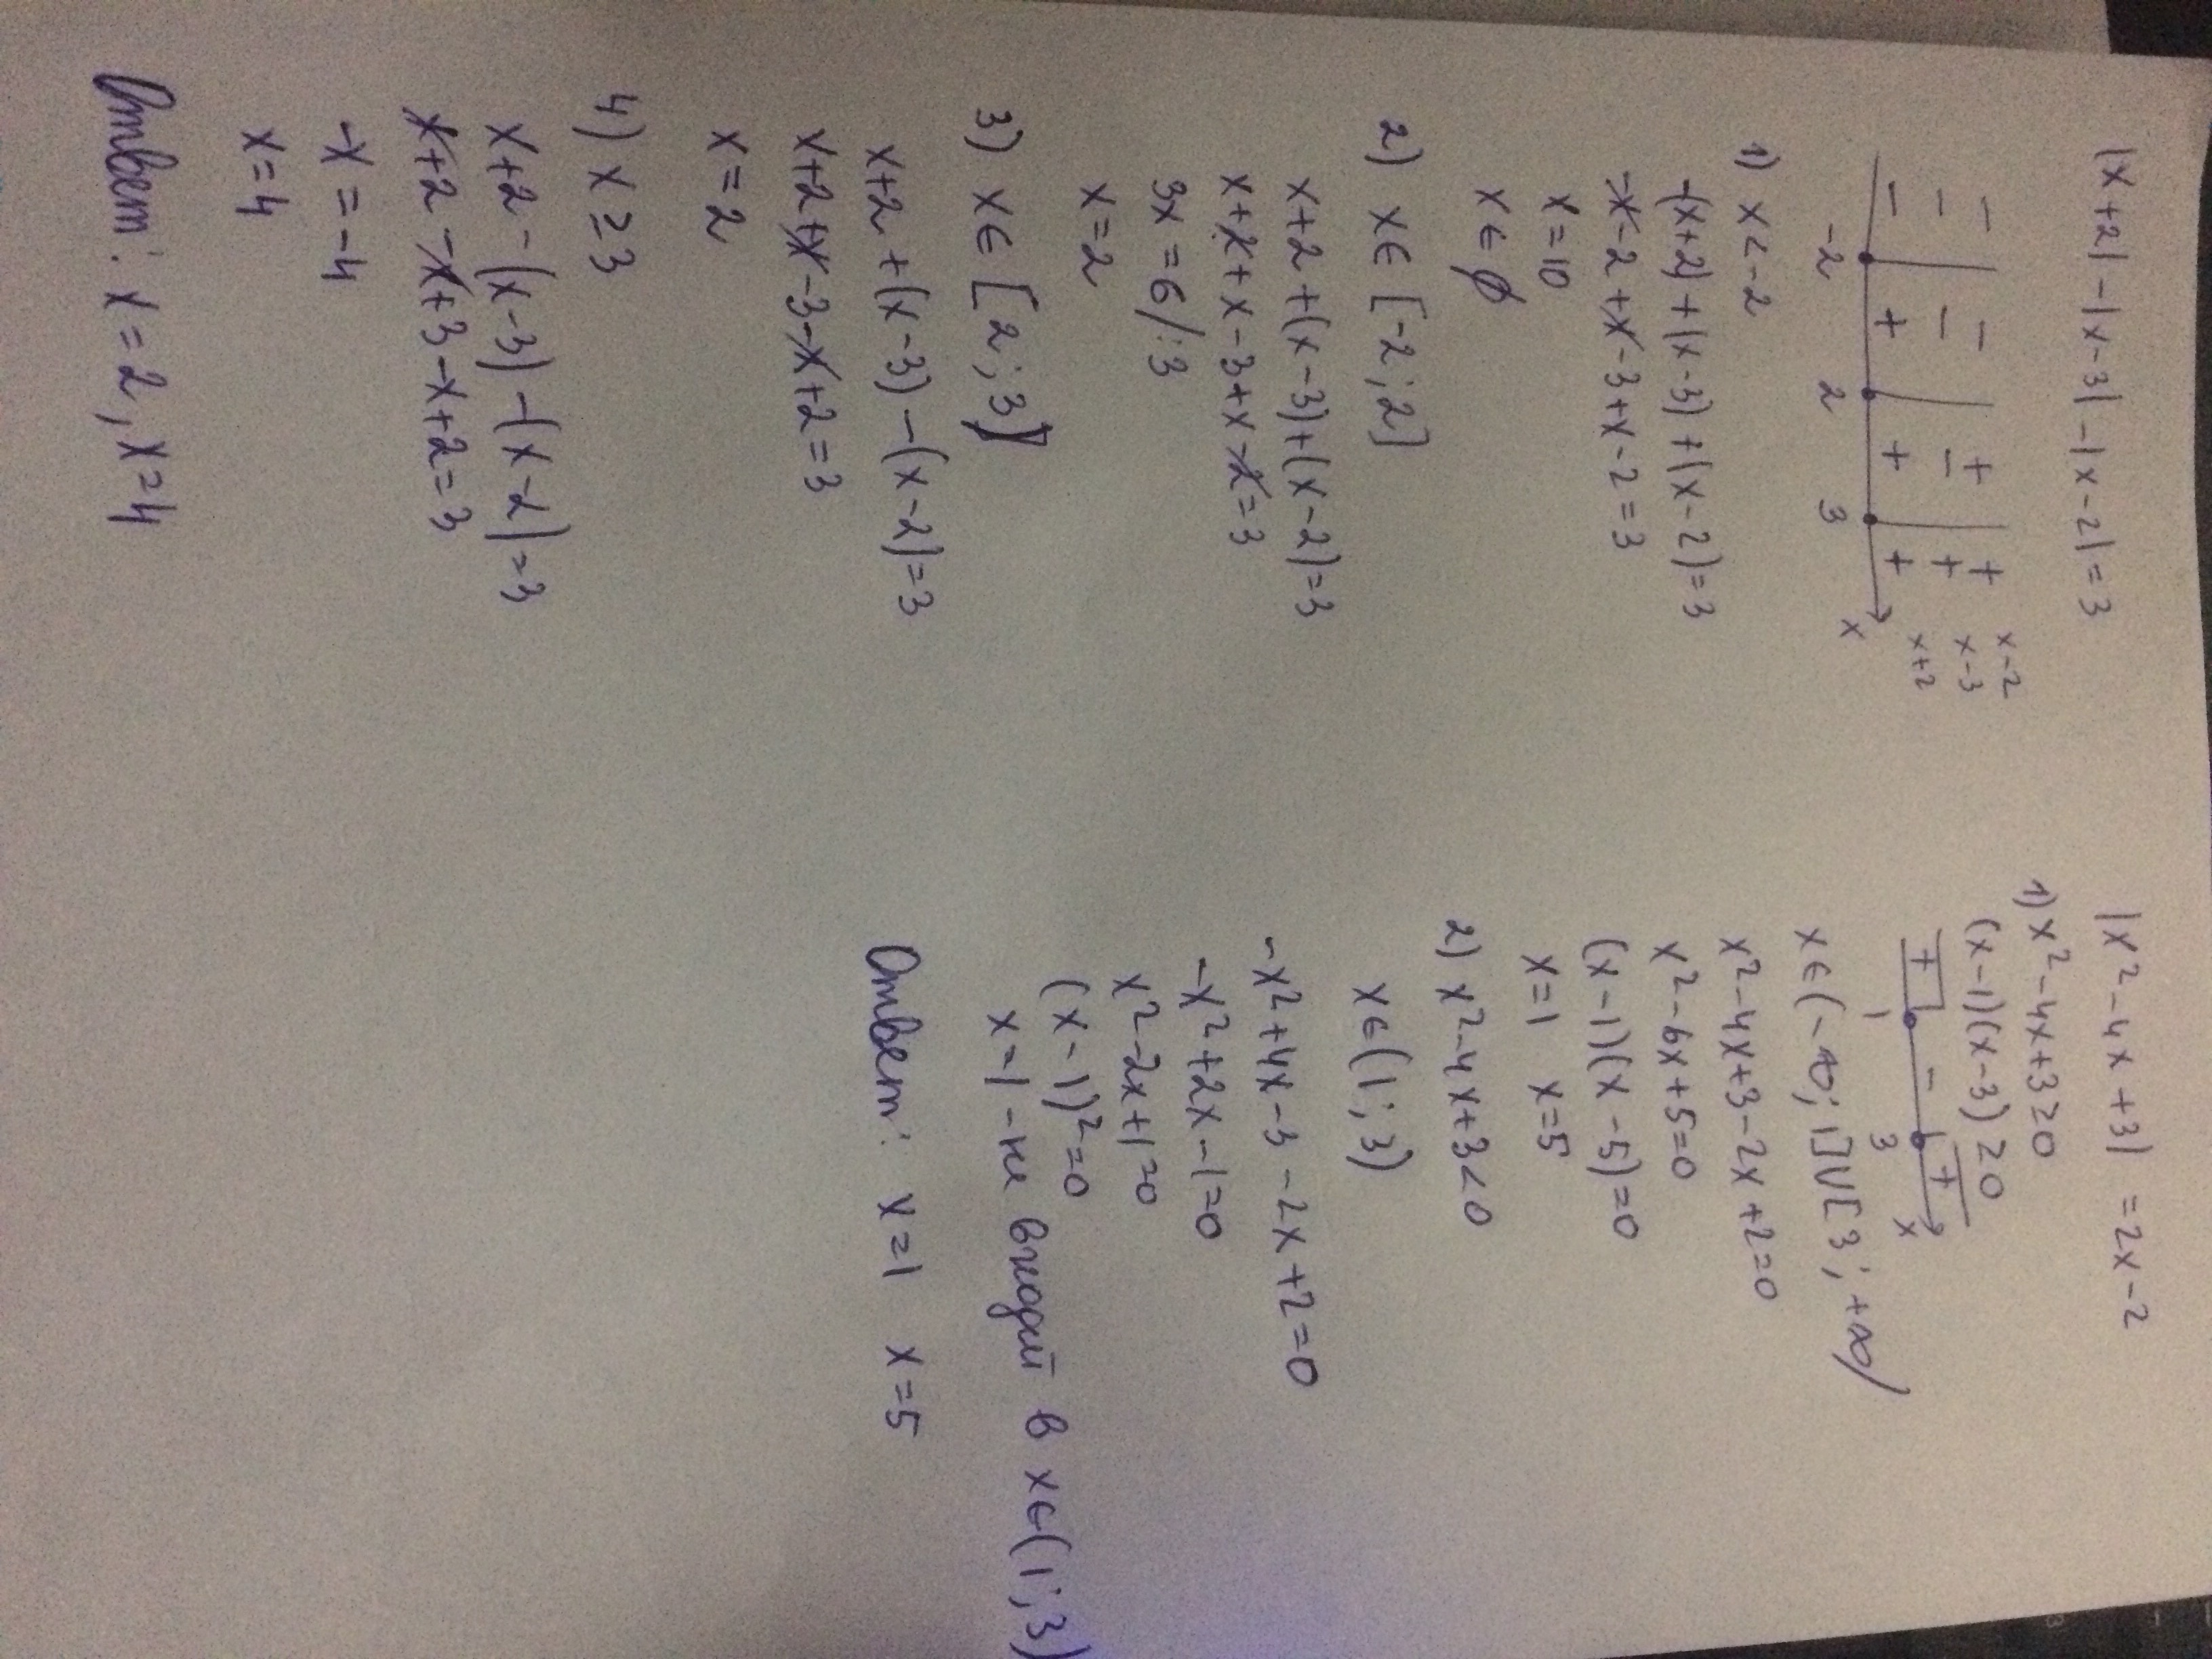 |x+2| - |x-3| - |x-2| = 3
- - + + x-2
- - - + x-3
- + + + x+2
-2 2 3 x
1) x < -2
-(x+2) + (x-3) + (x-2) = 3
-x-2+x-3+x-2=3
x=10
x∈ ∅
2) x∈ [-2; 2]
x+2+(x-3)+(x-2)=3
x+x+x-3+x-x=3
3x=6/:3
x=2
3) x∈ [2; 3)
x+2+(x-3)-(x-2)=3
x+2+x-3-x+2=3
x=2
4) x≥3
x+2-(x-3)-(x-2)=3
x+2-x+3-x+2=3
-x=-4
x=4
Ответ: x=2, x=4
|x²-4x+3| =2x-2
1) x²-4x+3≥0
(x-1)(x-3)≥0
+ - +
1 3 x
x∈(-∞; 1]U[3; +∞)
x²-4x+3-2x+2=0
x²-6x+5=0
(x-1)(x-5)=0
x=1 x=5
2) x²-4x+3<0
x∈(1; 3)
-x²+4x-3-2x+2=0
-x²+2x-1=0
x²-2x+1=0
(x-1)²=0
x=1 -не входит в x∈(1; 3)
Ответ: x=1 x=5